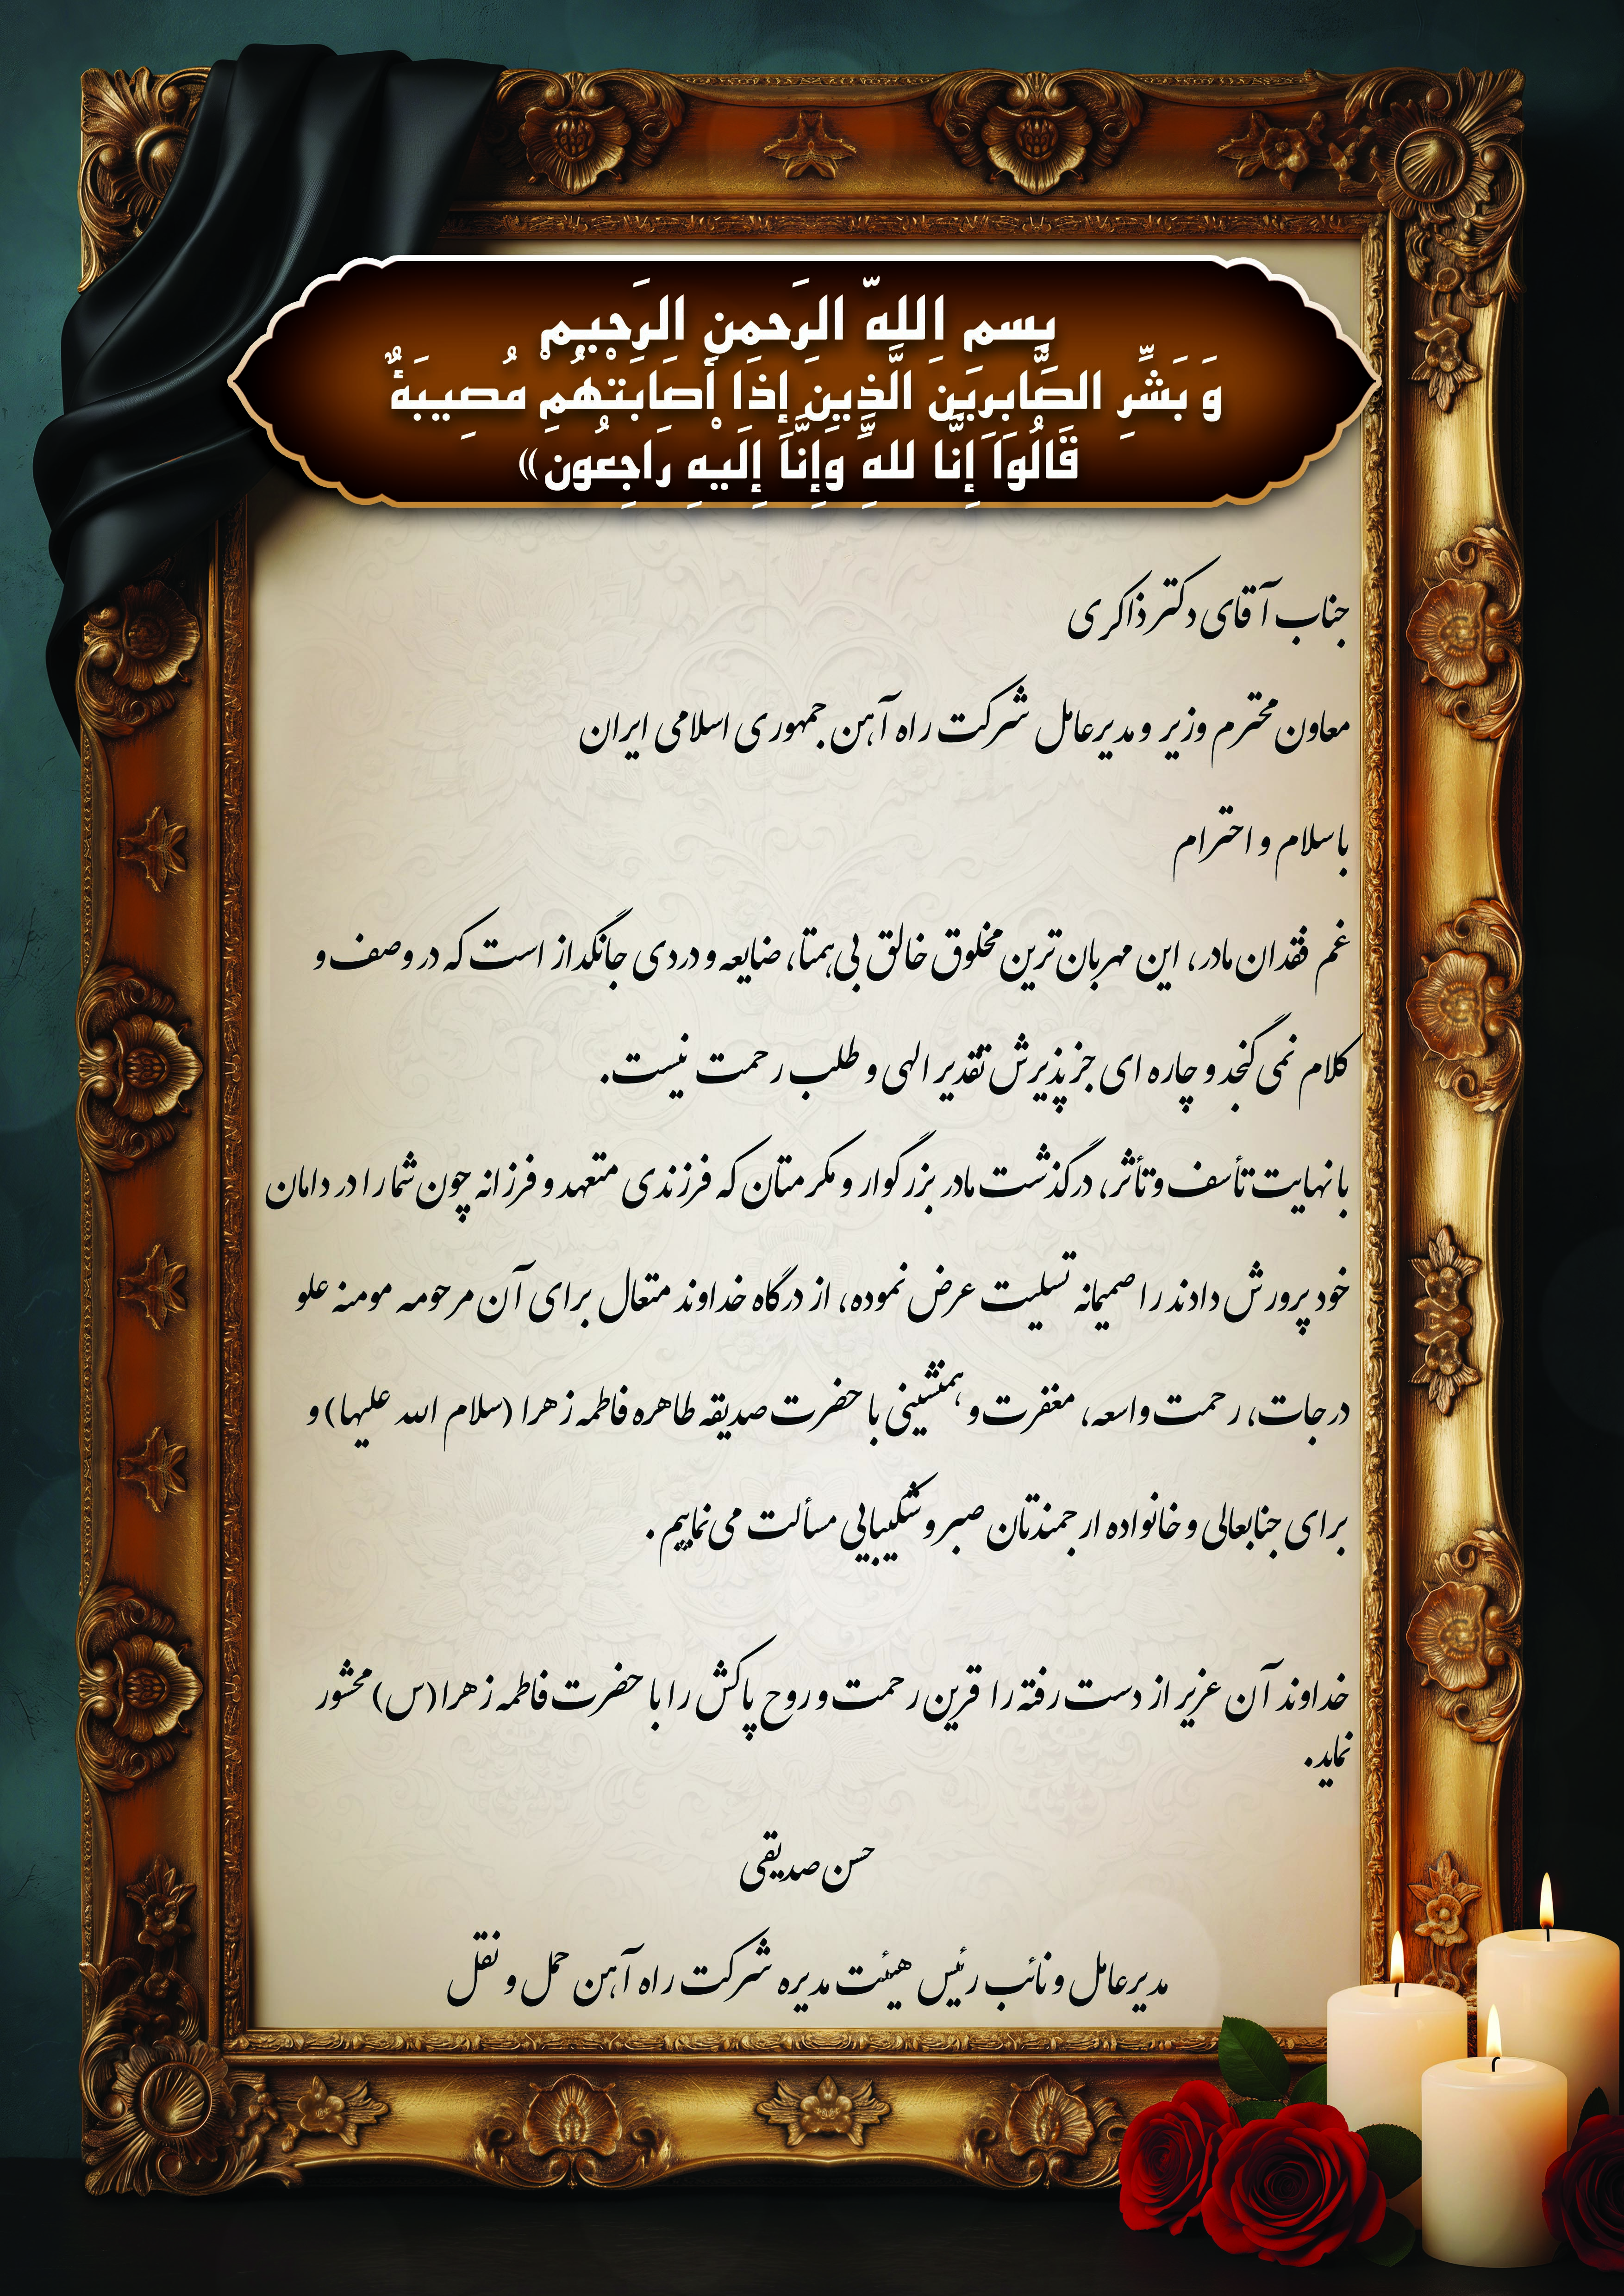 بِسمِ اللهِّ الرَحمنِ الرَحیمِ
وَ بَشِّرِ الصَّابِرِينَ الَّذِينَ إِذَا أَصَابَتْهُمْ مُصِيبَةٌ
قَالُوَاَ إِنَّا للهِّ وَإِنَّاَ إِلَيْهِ رَاجِعُونَ»
جناب آقای دکتر ذاکری
معاون محترم وزیر و مدیرعامل شرکت راه آهن جمهوری اسلامی ایران
با سلام و احترام
غم فقدان مادر، این مهربان‌ترین مخلوق خالق بی‌همتا، ضایعه و دردی جانگداز است که در وصف و
کلام نمی گنجد و چاره ای جز پذیرش تقدیر الهی و طلب رحمت نیست.
با نهایت تأسف و تأثر، درگذشت مادر بزرگوار و مکرمتان که فرزندی متعهد و فرزانه چون شما را در دامان
خود پرورش دادند را صمیمانه تسلیت عرض نموده، از درگاه خداوند متعال برای آن مرحومه مومنه علو
درجات، رحمت واسعه، مغفرت و همنشینی با حضرت صدیقه طاهره فاطمه زهرا (سلام الله علیها) و
برای جنابعالی و خانواده ارجمندتان صبر و شکیبایی مسألت می‌نماییم.
خداوند آن عزیز از دست رفته را قرین رحمت و روح پاکش را با حضرت فاطمه زهرا(س) محشور
نماید.
حسن صدیقی
مدیرعامل و نائب رئیس هیئت مدیره شرکت راه آهن حمل و نقل